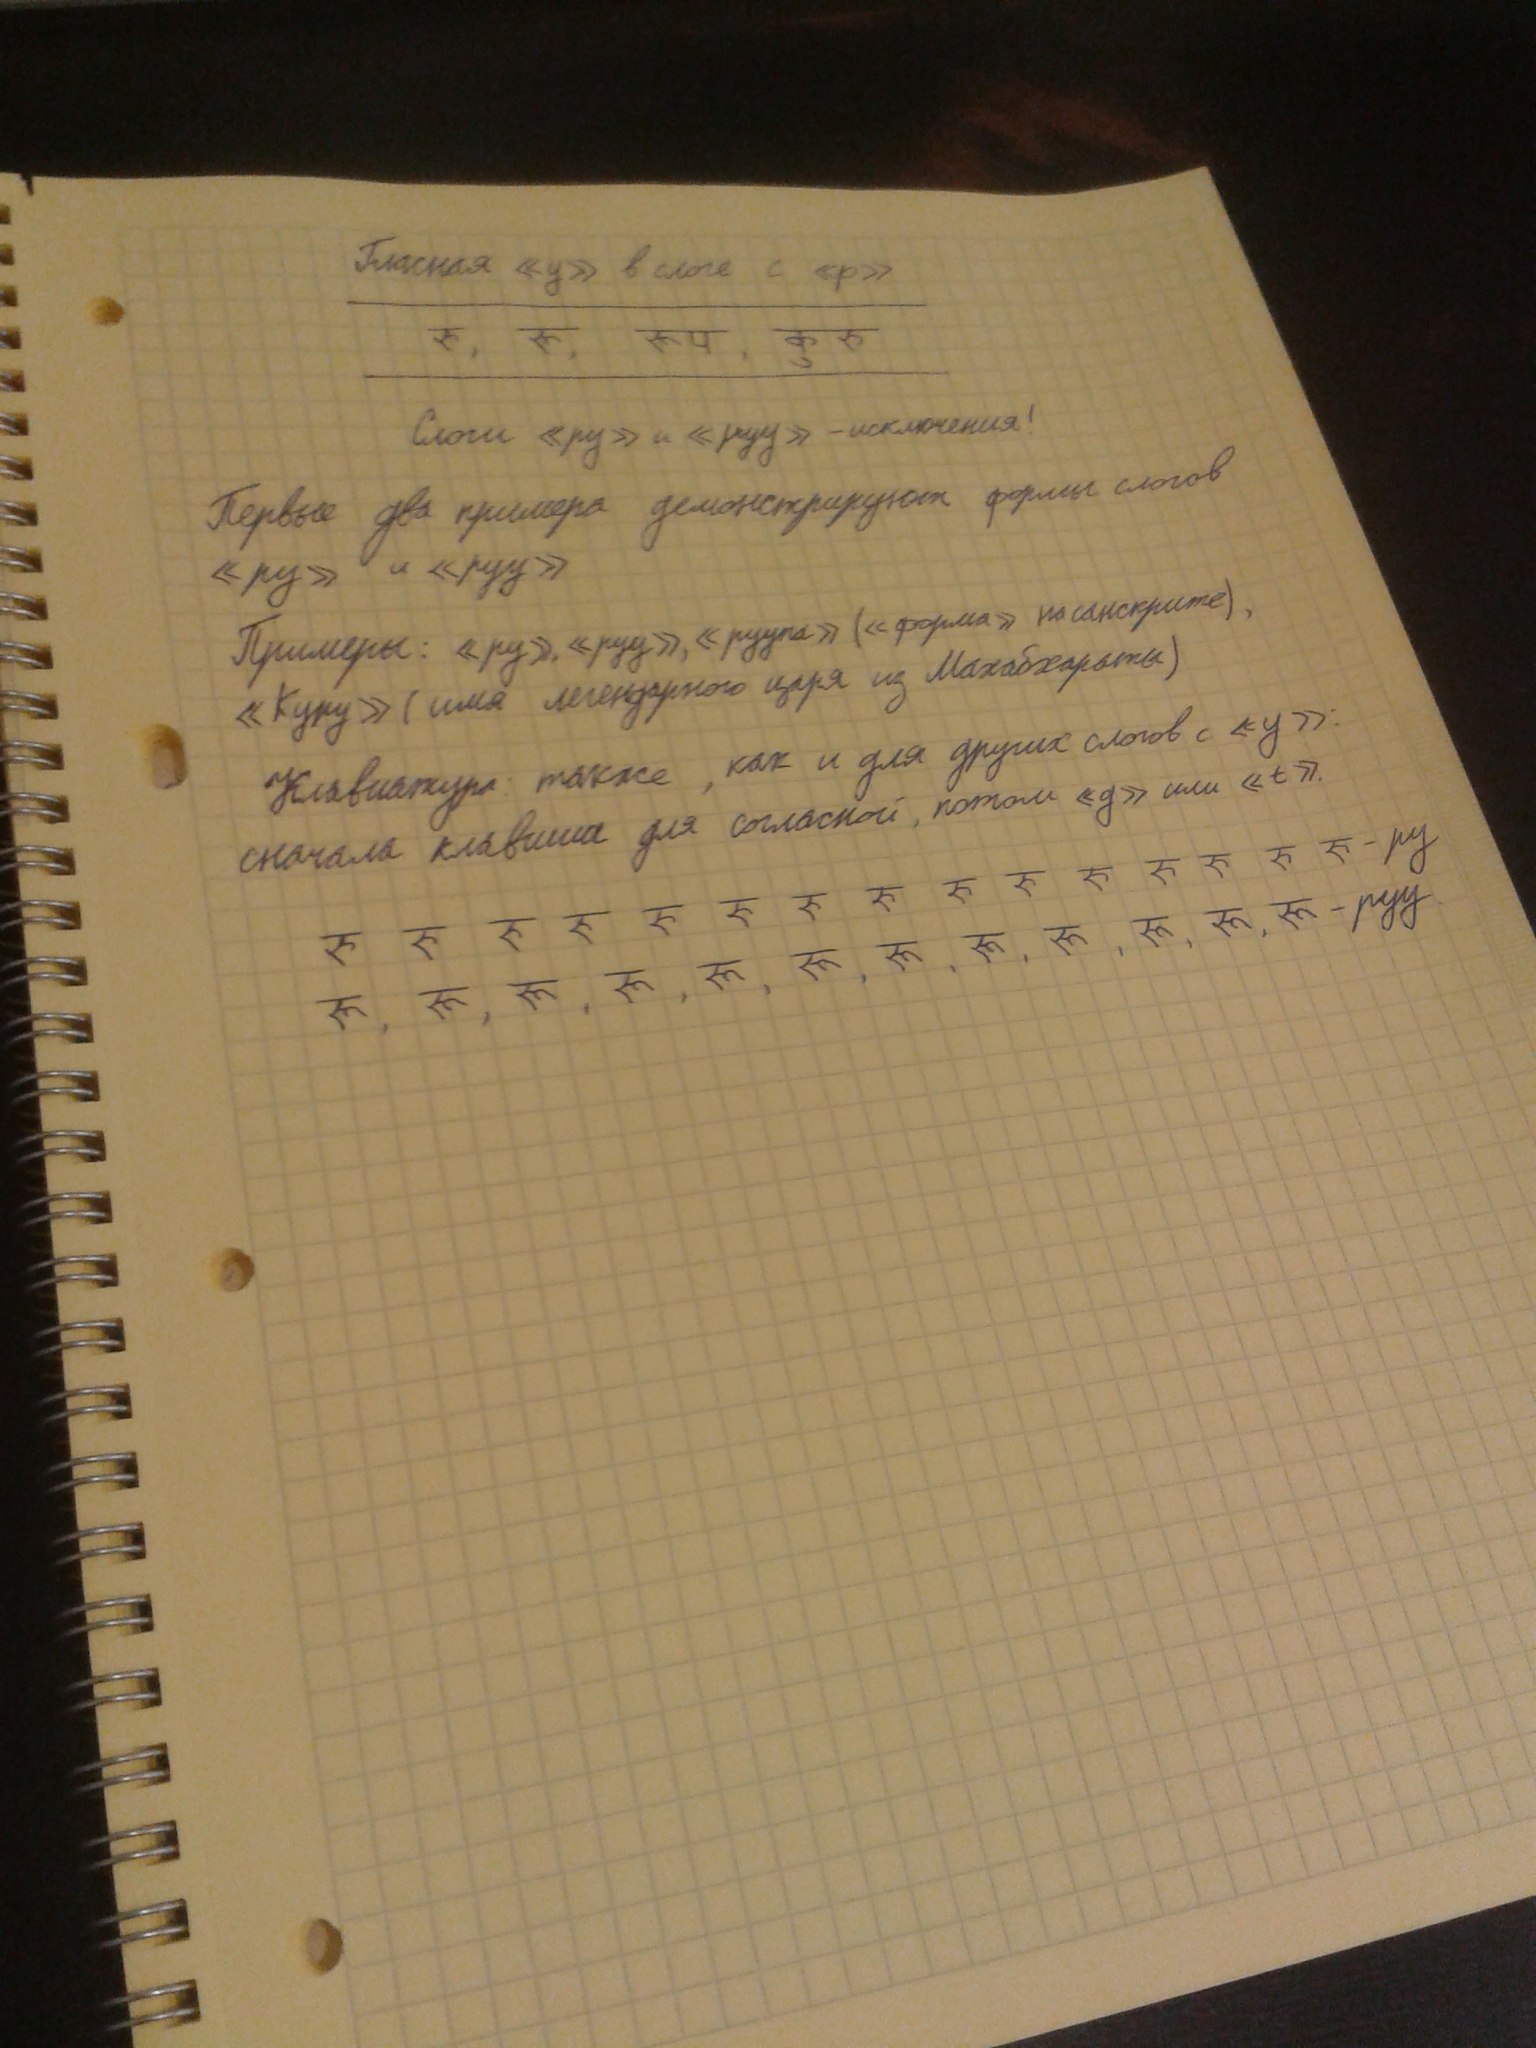 Гласная «у» в слоге с «р»
रु, रू, रूप, कुरु
Слоги «ру» и «руу» - исключения!
Первые два примера демонстрируют формы слогов
«ру» и «руу»
Примеры: «ру», «руу», «руупа» («форма» на санскрите),
«Куру» (имя легендарного царя из Махабхараты)
Клавиатура: также, как и для других слогов с «у»:
сначала клавиша для согласной, потом «g» или «t».
रु रु रु रु रु रु रु रु रु रु रु रु रु रु रु - ру
रू, रू, रू, रू, रू, रू, रू, रू, रू, रू, रू, रू - руу